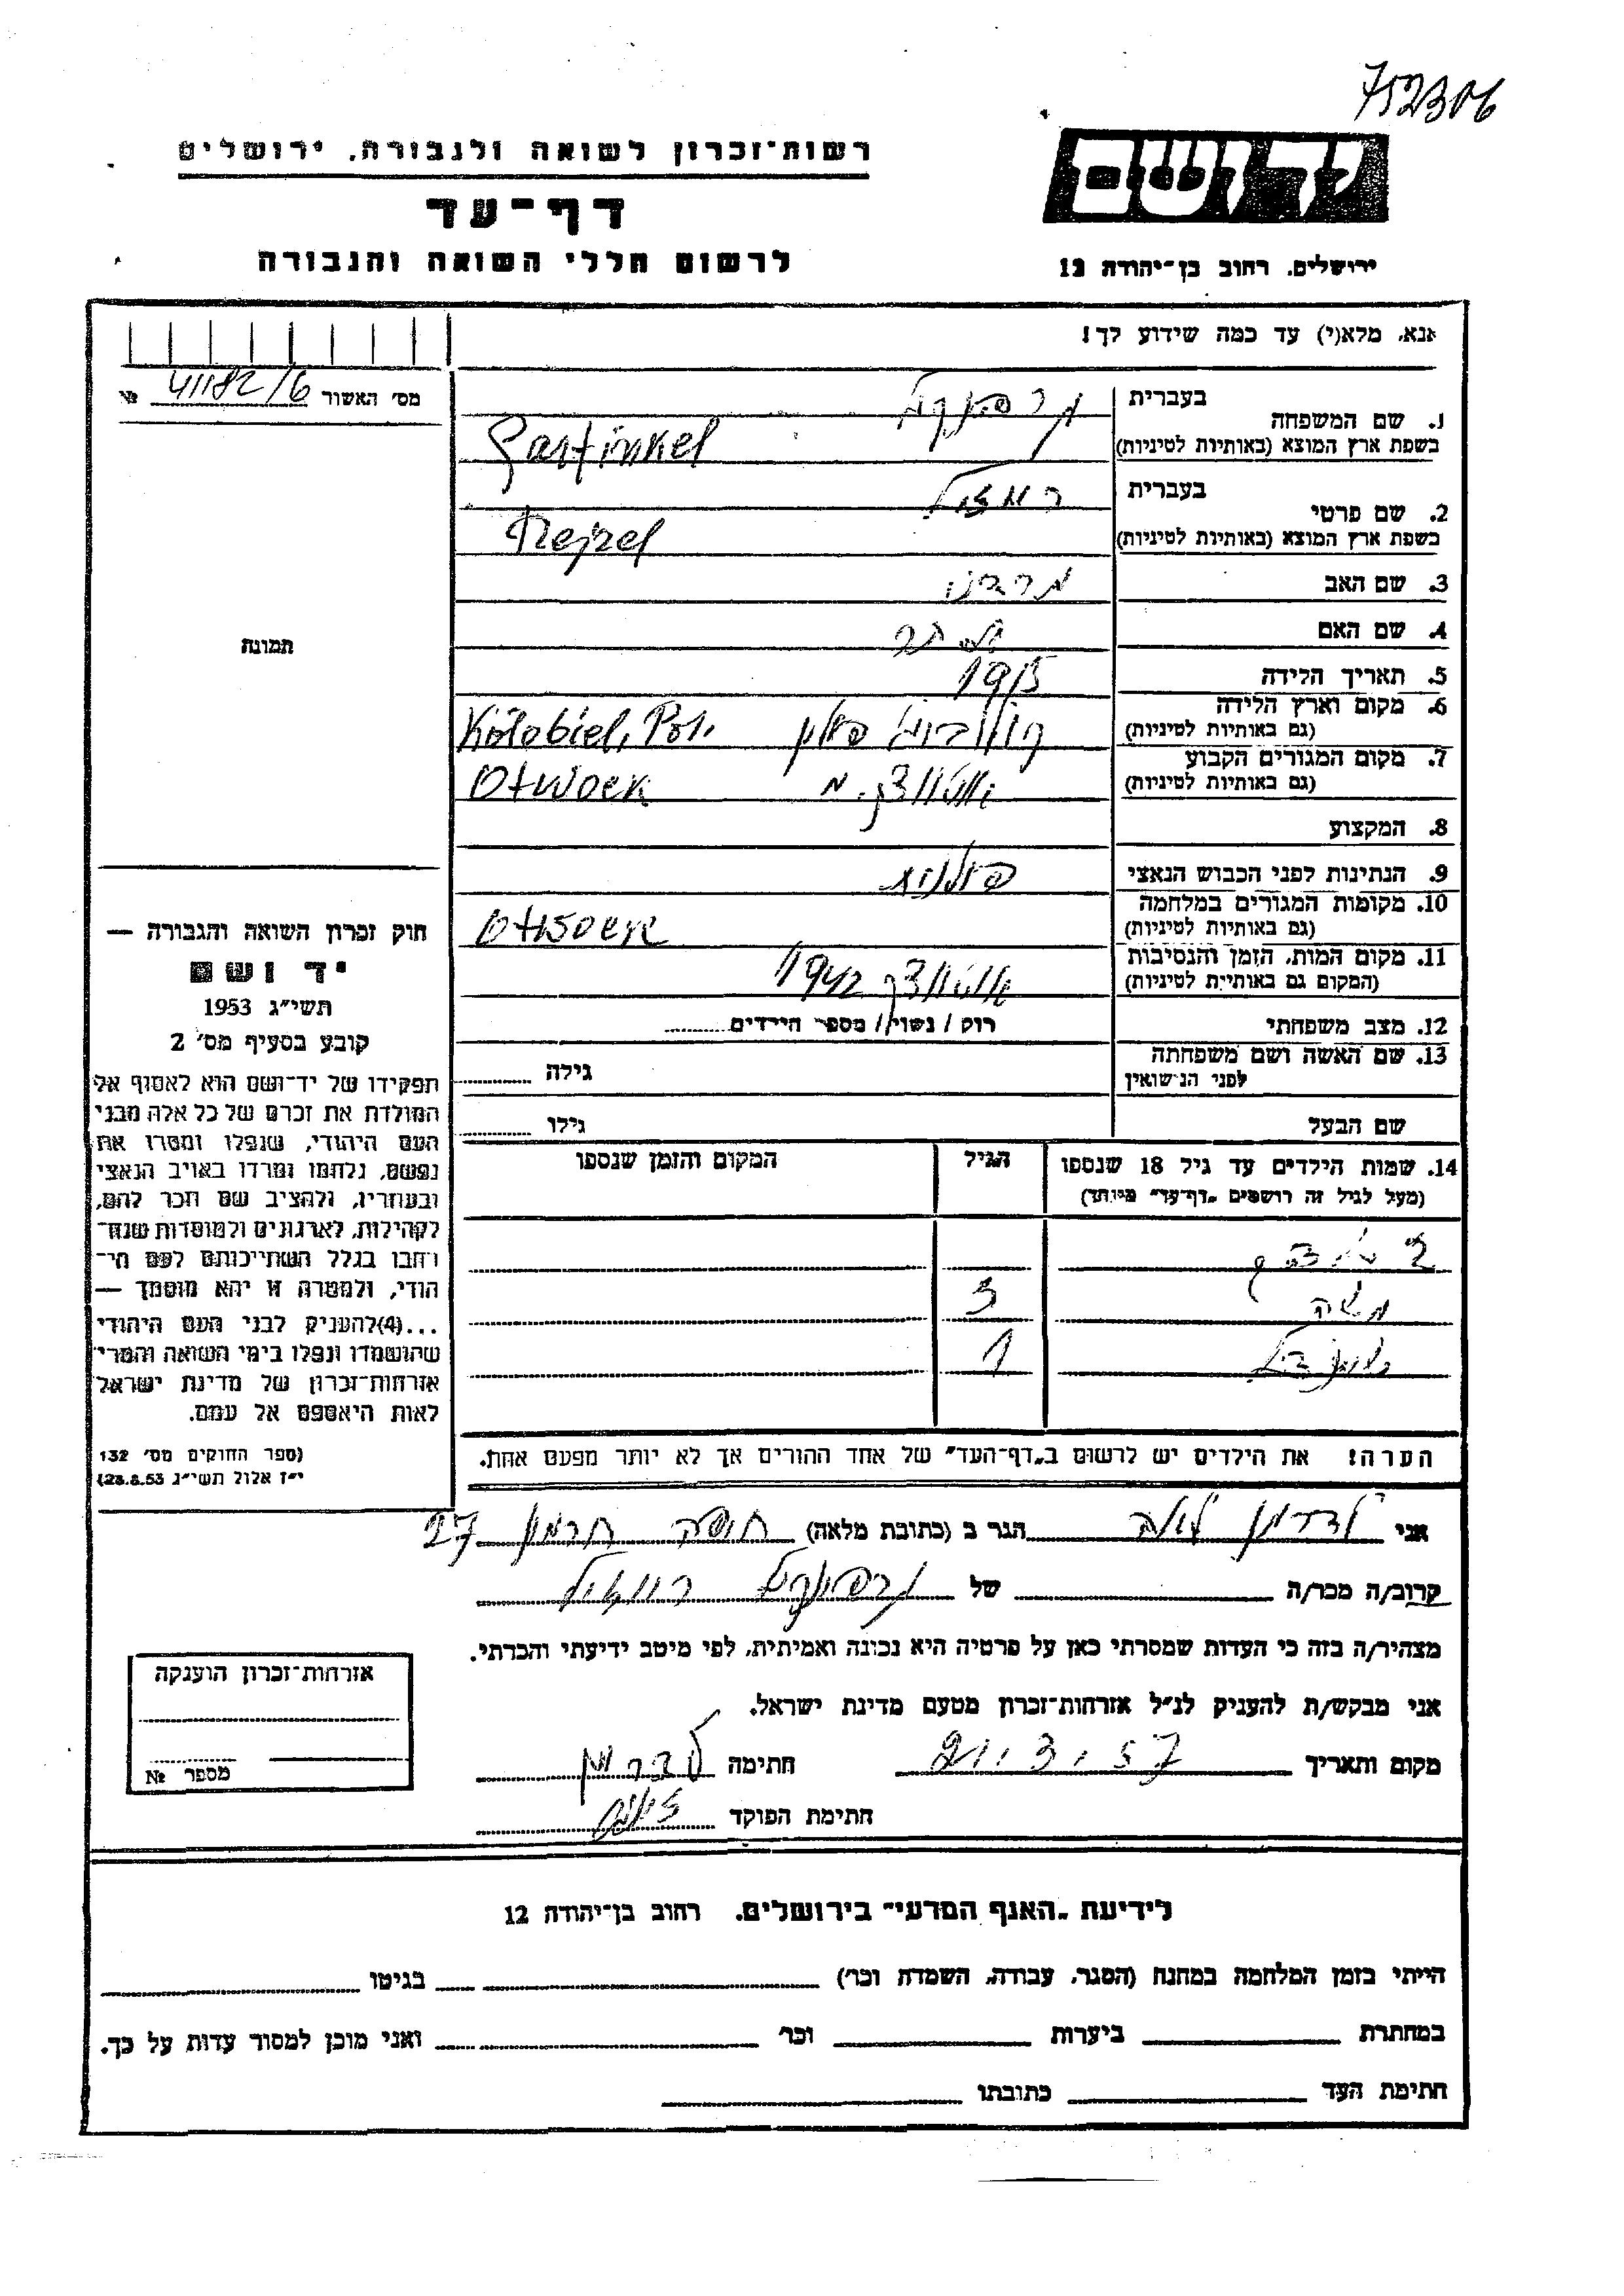 752306
רשות־זכרון לשואה ולגבורה, ירושלים
יד ושם
דף־עד
לרשום חללי השואה והגבורה
ירושלים, רחוב בן־יהודה 12
אנא, מלא(י) עד כמה שידוע לך!
מס' האשור № 41182/6
תמונה
1. שם המשפחה
בעברית גרפינקל
בשפת ארץ המוצא (באותיות לטיניות) Garfinkel
2. שם פרטי
בעברית רייזל
בשפת ארץ המוצא (באותיות לטיניות) Rejzel
3. שם האב מרדכי
4. שם האם
5. תאריך הלידה 1915
6. מקום וארץ הלידה
(גם באותיות לטיניות) קולוביל פולין Kołobiel, Pol.
7. מקום המגורים הקבוע
(גם באותיות לטיניות) Otwock
8. המקצוע
9. הנתינות לפני הכבוש הנאצי פולנית
10. מקומות המגורים במלחמה
(גם באותיות לטיניות) Otwock
11. מקום המות, הזמן והנסיבות
(המקום גם באותיית לטיניות) אוטוצק 1942
12. מצב משפחתי רוק / נשוי / מספר הילדים
13. שם האשה ושם משפחתה
לפני הנישואין גילה
שם הבעל גילו
14. שמות הילדים עד גיל 18 שנספו
(מעל לגיל זה רושמים „דף־עד" מיוחד)
הגיל
המקום והזמן שנספו
משה 3
1
הערה! את הילדים יש לרשום ב„דף־העד" של אחד ההורים אך לא יותר מפעם אחת.
חוק זכרון השואה והגבורה —
יד ושם
תשי"ג 1953
קובע בסעיף מס' 2
תפקידו של יד־ושם הוא לאסוף אל
המולדת את זכרם של כל אלה מבני
העם היהודי, שנפלו ומסרו את
נפשם, נלחמו ומרדו באויב הנאצי
ובעוזריו, ולהציב שם וזכר להם,
לקהילות, לארגונים ולמוסדות שנח־
רבו בגלל השתייכותם לעם הי־
הודי, ולמטרה זו יהא מוסמך —
...(4) להעניק לבני העם היהודי
שהושמדו ונפלו בימי השואה והמרי
אזרחות־זכרון של מדינת ישראל
לאות היאספם אל עמם.
(ספר החוקים מס' 132
י"ז אלול תשי"ג 28.8.53)
אני הגר ב (כתובת מלאה) חיפה 27
קרוב/ה מכר/ה של גרפינקל רייזל
מצהיר/ה בזה כי העדות שמסרתי כאן על פרטיה היא נכונה ואמיתית, לפי מיטב ידיעתי והכרתי.
אני מבקש/ת להעניק לנ"ל אזרחות־זכרון מטעם מדינת ישראל.
מקום ותאריך 21.3.57 חתימה
חתימת הפוקד
אזרחות־זכרון הוענקה
מספר №
לידיעת „האגף המדעי" בירושלים, רחוב בן־יהודה 12
הייתי בזמן המלחמה במחנה (הסגר, עבודה, השמדה וכו') בגיטו
במחתרת ביערות וכו' ואני מוכן למסור עדות על כך.
חתימת העד כתובתו